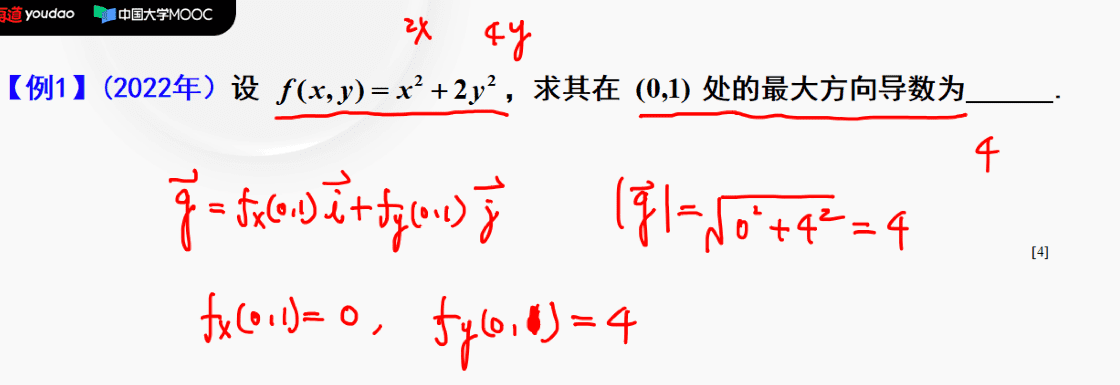 有道 youdao 中国大学MOOC
2x 4y
【例1】(2022年) 设 f(x,y)=x²+2y²，求其在 (0,1) 处的最大方向导数为______.
4
g⃗ = fx(0,1) i⃗ + fy(0,1) j⃗ |g⃗| = √(0²+4²) = 4
[4]
fx(0,1) = 0, fy(0,1) = 4